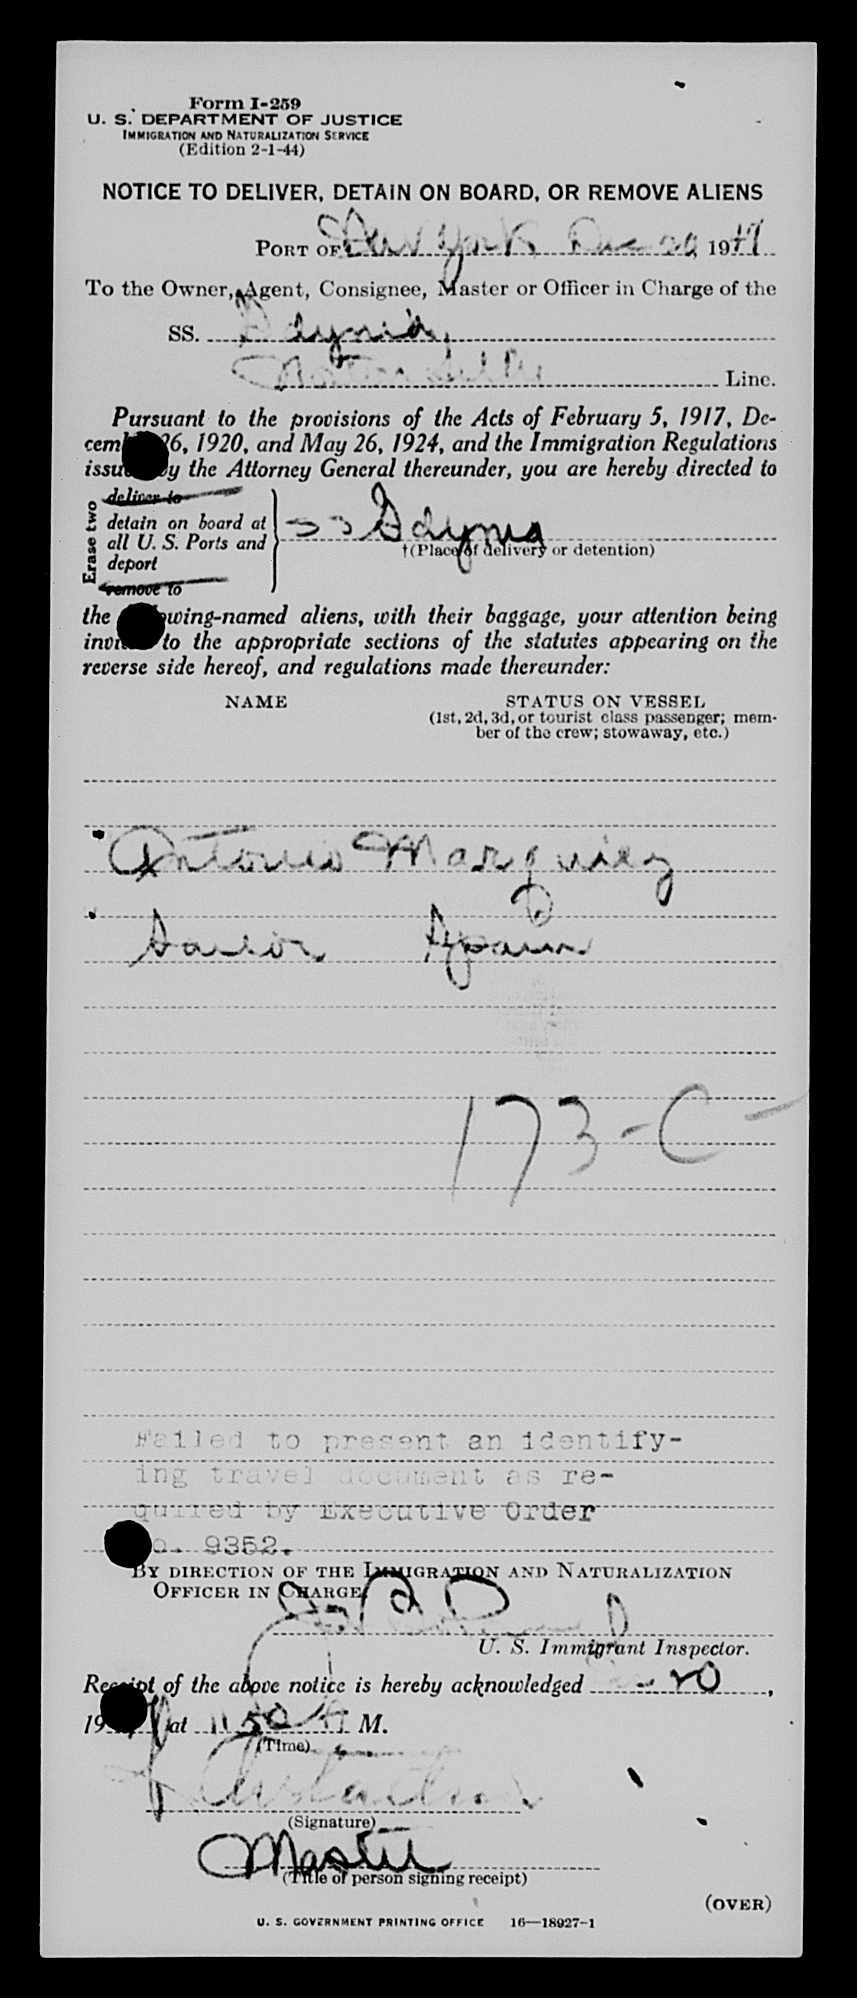 Form I-259
U. S. DEPARTMENT OF JUSTICE
IMMIGRATION AND NATURALIZATION SERVICE
(Edition 2-1-44)
NOTICE TO DELIVER, DETAIN ON BOARD, OR REMOVE ALIENS
PORT OF New York Dec 20, 1947
To the Owner, Agent, Consignee, Master or Officer in Charge of the
SS. Gdynia
Line.
Pursuant to the provisions of the Acts of February 5, 1917, De-
cem 26, 1920, and May 26, 1924, and the Immigration Regulations
issu y the Attorney General thereunder, you are hereby directed to
Erase two
deliver to
detain on board at
all U. S. Ports and
deport
remove to
SS Gdynia
†(Place of delivery or detention)
the wing-named aliens, with their baggage, your attention being
invi to the appropriate sections of the statutes appearing on the
reverse side hereof, and regulations made thereunder:
NAME STATUS ON VESSEL
(1st, 2d, 3d, or tourist class passenger; mem-
ber of the crew; stowaway, etc.)
Antonio Marquiez
Sailor Spain
173-C-
Failed to present an identify-
ing travel document as re-
quired by Executive Order
o. 9352.
BY DIRECTION OF THE IMMIGRATION AND NATURALIZATION
OFFICER IN CHARGE.
U. S. Immigrant Inspector.
Receipt of the above notice is hereby acknowledged 20,
19 at 11 50 A M.
(Time)
(Signature)
Master
(Title of person signing receipt)
(OVER)
U. S. GOVERNMENT PRINTING OFFICE 16—18927-1